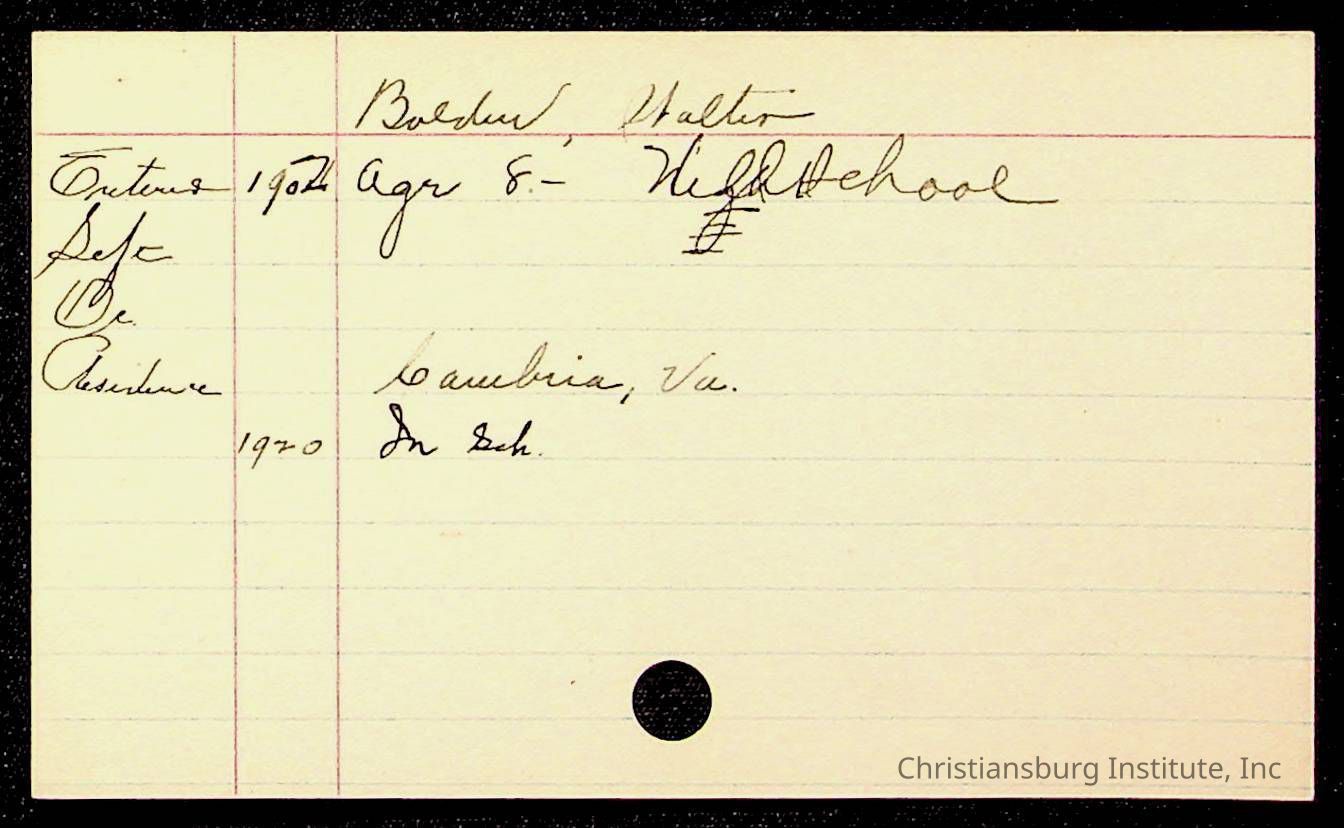 Bolden, Walter
Enters 190 Age 8 - High School
Left
Residence Cambria, Va.
1920 In Sch.
Christiansburg Institute, Inc